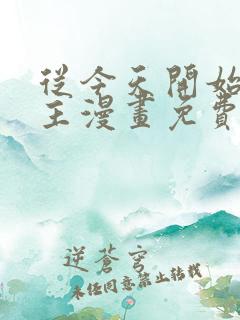 從今天開始
王漫畫免費
逆蒼穹
未经同意禁止转载